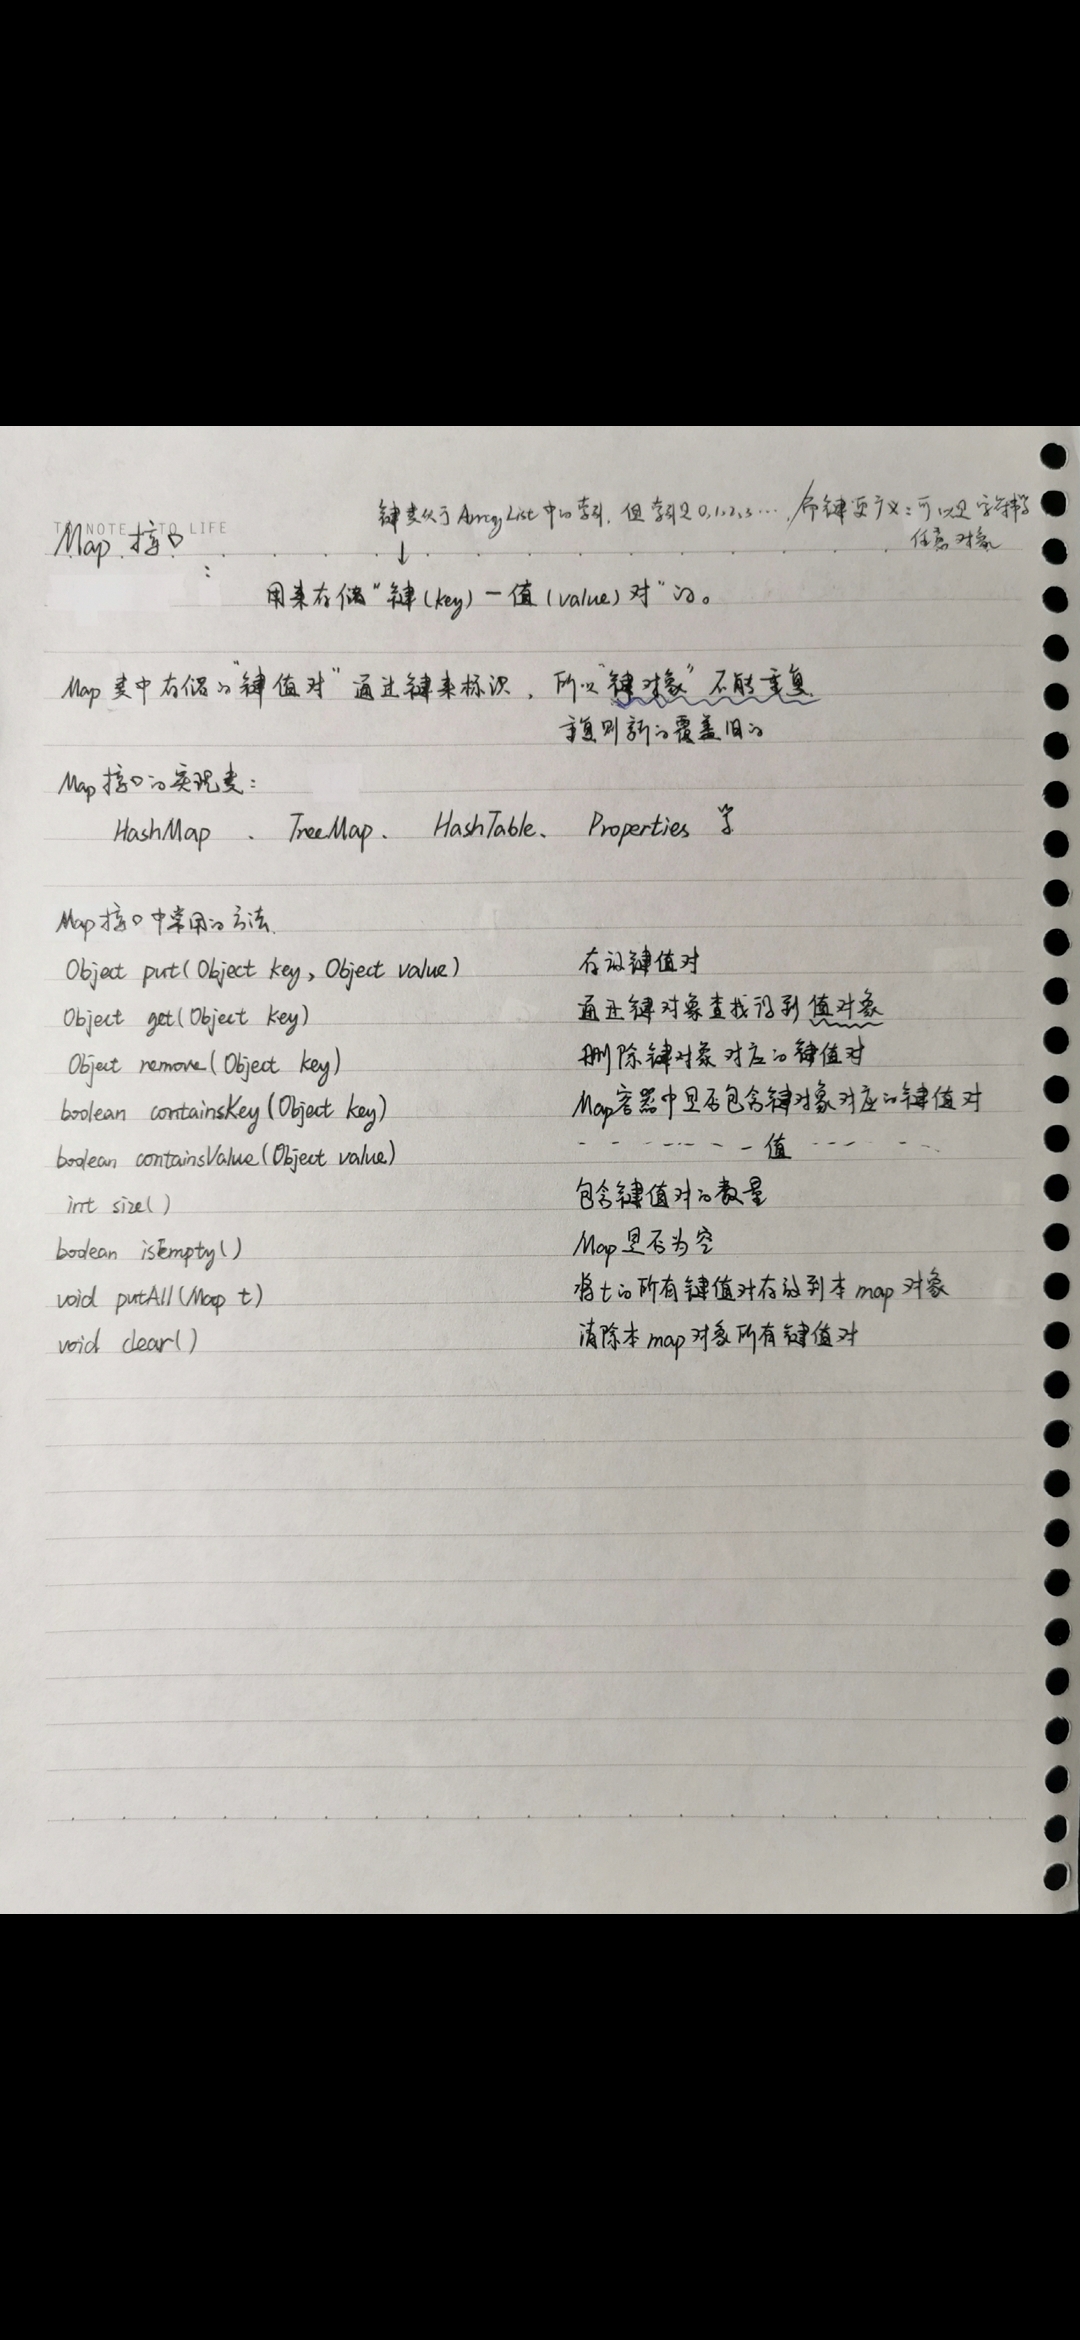 键类似于ArrayList中的索引，但索引是0,1,2,3…，而键更广义：可以是字符串等
任意对象
TO NOTE TO LIFE
Map 接口：
↓
用来存储“键(key)－值(value)对”的。
Map类中存储的“键值对”通过键来标识，所以“键对象”不能重复.
重复则新的覆盖旧的
Map接口的实现类：
HashMap 、 TreeMap、 HashTable、 Properties 等
Map接口中常用的方法.
Object put(Object key, Object value) 存放键值对
Object get(Object key) 通过键对象查找得到值对象
Object remove(Object key) 删除键对象对应的键值对
boolean containsKey(Object key) Map容器中是否包含键对象对应的键值对
boolean containsValue(Object value) - - - - - - - 值 - - - - -
int size() 包含键值对的数量
boolean isEmpty() Map是否为空
void putAll(Map t) 将t的所有键值对存放到本map对象
void clear() 清除本map对象所有键值对